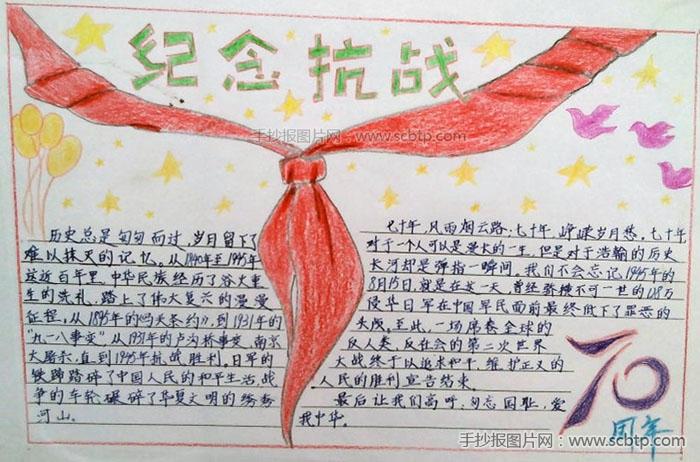 纪念抗战
手抄报图片网:www.scbtp.com
历史总是匆匆而过,岁月留下了
难以抹灭的记忆。从1840年至1945年
这近百年里,中华民族经历了浴火重
生的洗礼,踏上了伟大复兴的漫漫
征程,从1895年的《马关条约》,到1931年的
“九一八事变”从1937年的卢沟桥事变,南京
大屠杀,直到1945年抗战胜利。日军的
铁蹄踏碎了中国人民的和平生活,战
争的车轮碾碎了华夏文明的锦绣
河山。
七十年,风雨烟云路,七十年,峥嵘岁月愁。七十年
对于一个人可以是漫长的一生,但是对于浩翰的历史
长河却是弹指一瞬间。我们不会忘记1945年的
8月15日,就是在这一天,曾经骄横不可一世的128万
侵华日军在中国军民面前最终低下了罪恶的
头颅。至此,一场席卷全球的
反人类、反社会的第二次世界
大战终于以追求和平、维护正义的
人民的胜利宣告结束。
最后让我们高呼,勿忘国耻,爱
我中华。
70
周年
手抄报图片网:www.scbtp.com